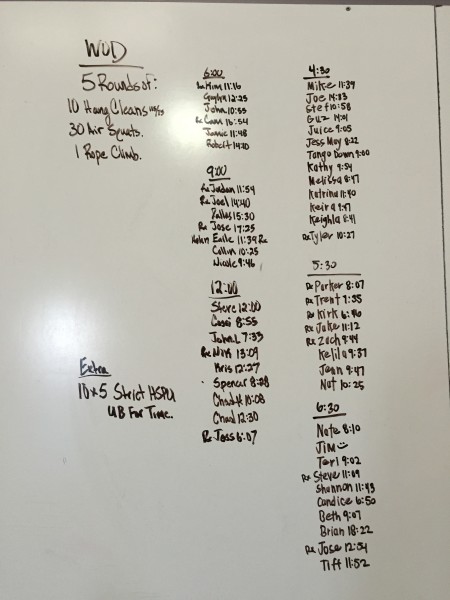 WOD
5 Rounds of:
10 Hang Cleans
30 Air Squats.
1 Rope Climb.
Extra
10x5 Strict HSPU
UB For Time.
6:00
11:16
12:25
John 10:55
Rx 16:54
Jamie 11:48
Robert 14:20
9:00
Rx Jordan 11:54
Rx Joel 14:40
Dallas 15:30
Rx Jose 17:25
Helen Earle 11:39 Rx
Collin 10:25
Nicole 9:46
12:00
Steve 12:00
Cassi 8:55
John L 7:33
Rx Nick 13:09
Kris 12:27
Spencer 8:28
Chad H 10:08
Chad 12:30
Rx Jess 6:07
4:30
Mike 11:39
Joe 14:33
Stef 10:58
Guz 14:01
Juice 9:05
Jess May 8:22
Tango Down 9:00
Kathy 9:54
Melissa 8:47
Katrina 11:40
Keira 9:47
Keighla 8:41
Rx Tyler 10:27
5:30
Rx Parker 8:07
Rx Trent 7:35
Rx Kirk 6:46
Rx Jake 11:12
Rx Zach 9:44
Kelila 9:37
Jenn 9:47
Nat 10:25
6:30
Nate 8:10
Jim
Teri 9:02
Rx Steve 11:09
Shannon 11:43
Candice 6:50
Beth 9:07
Brian 18:22
Rx Jose 12:54
Tiff 11:52